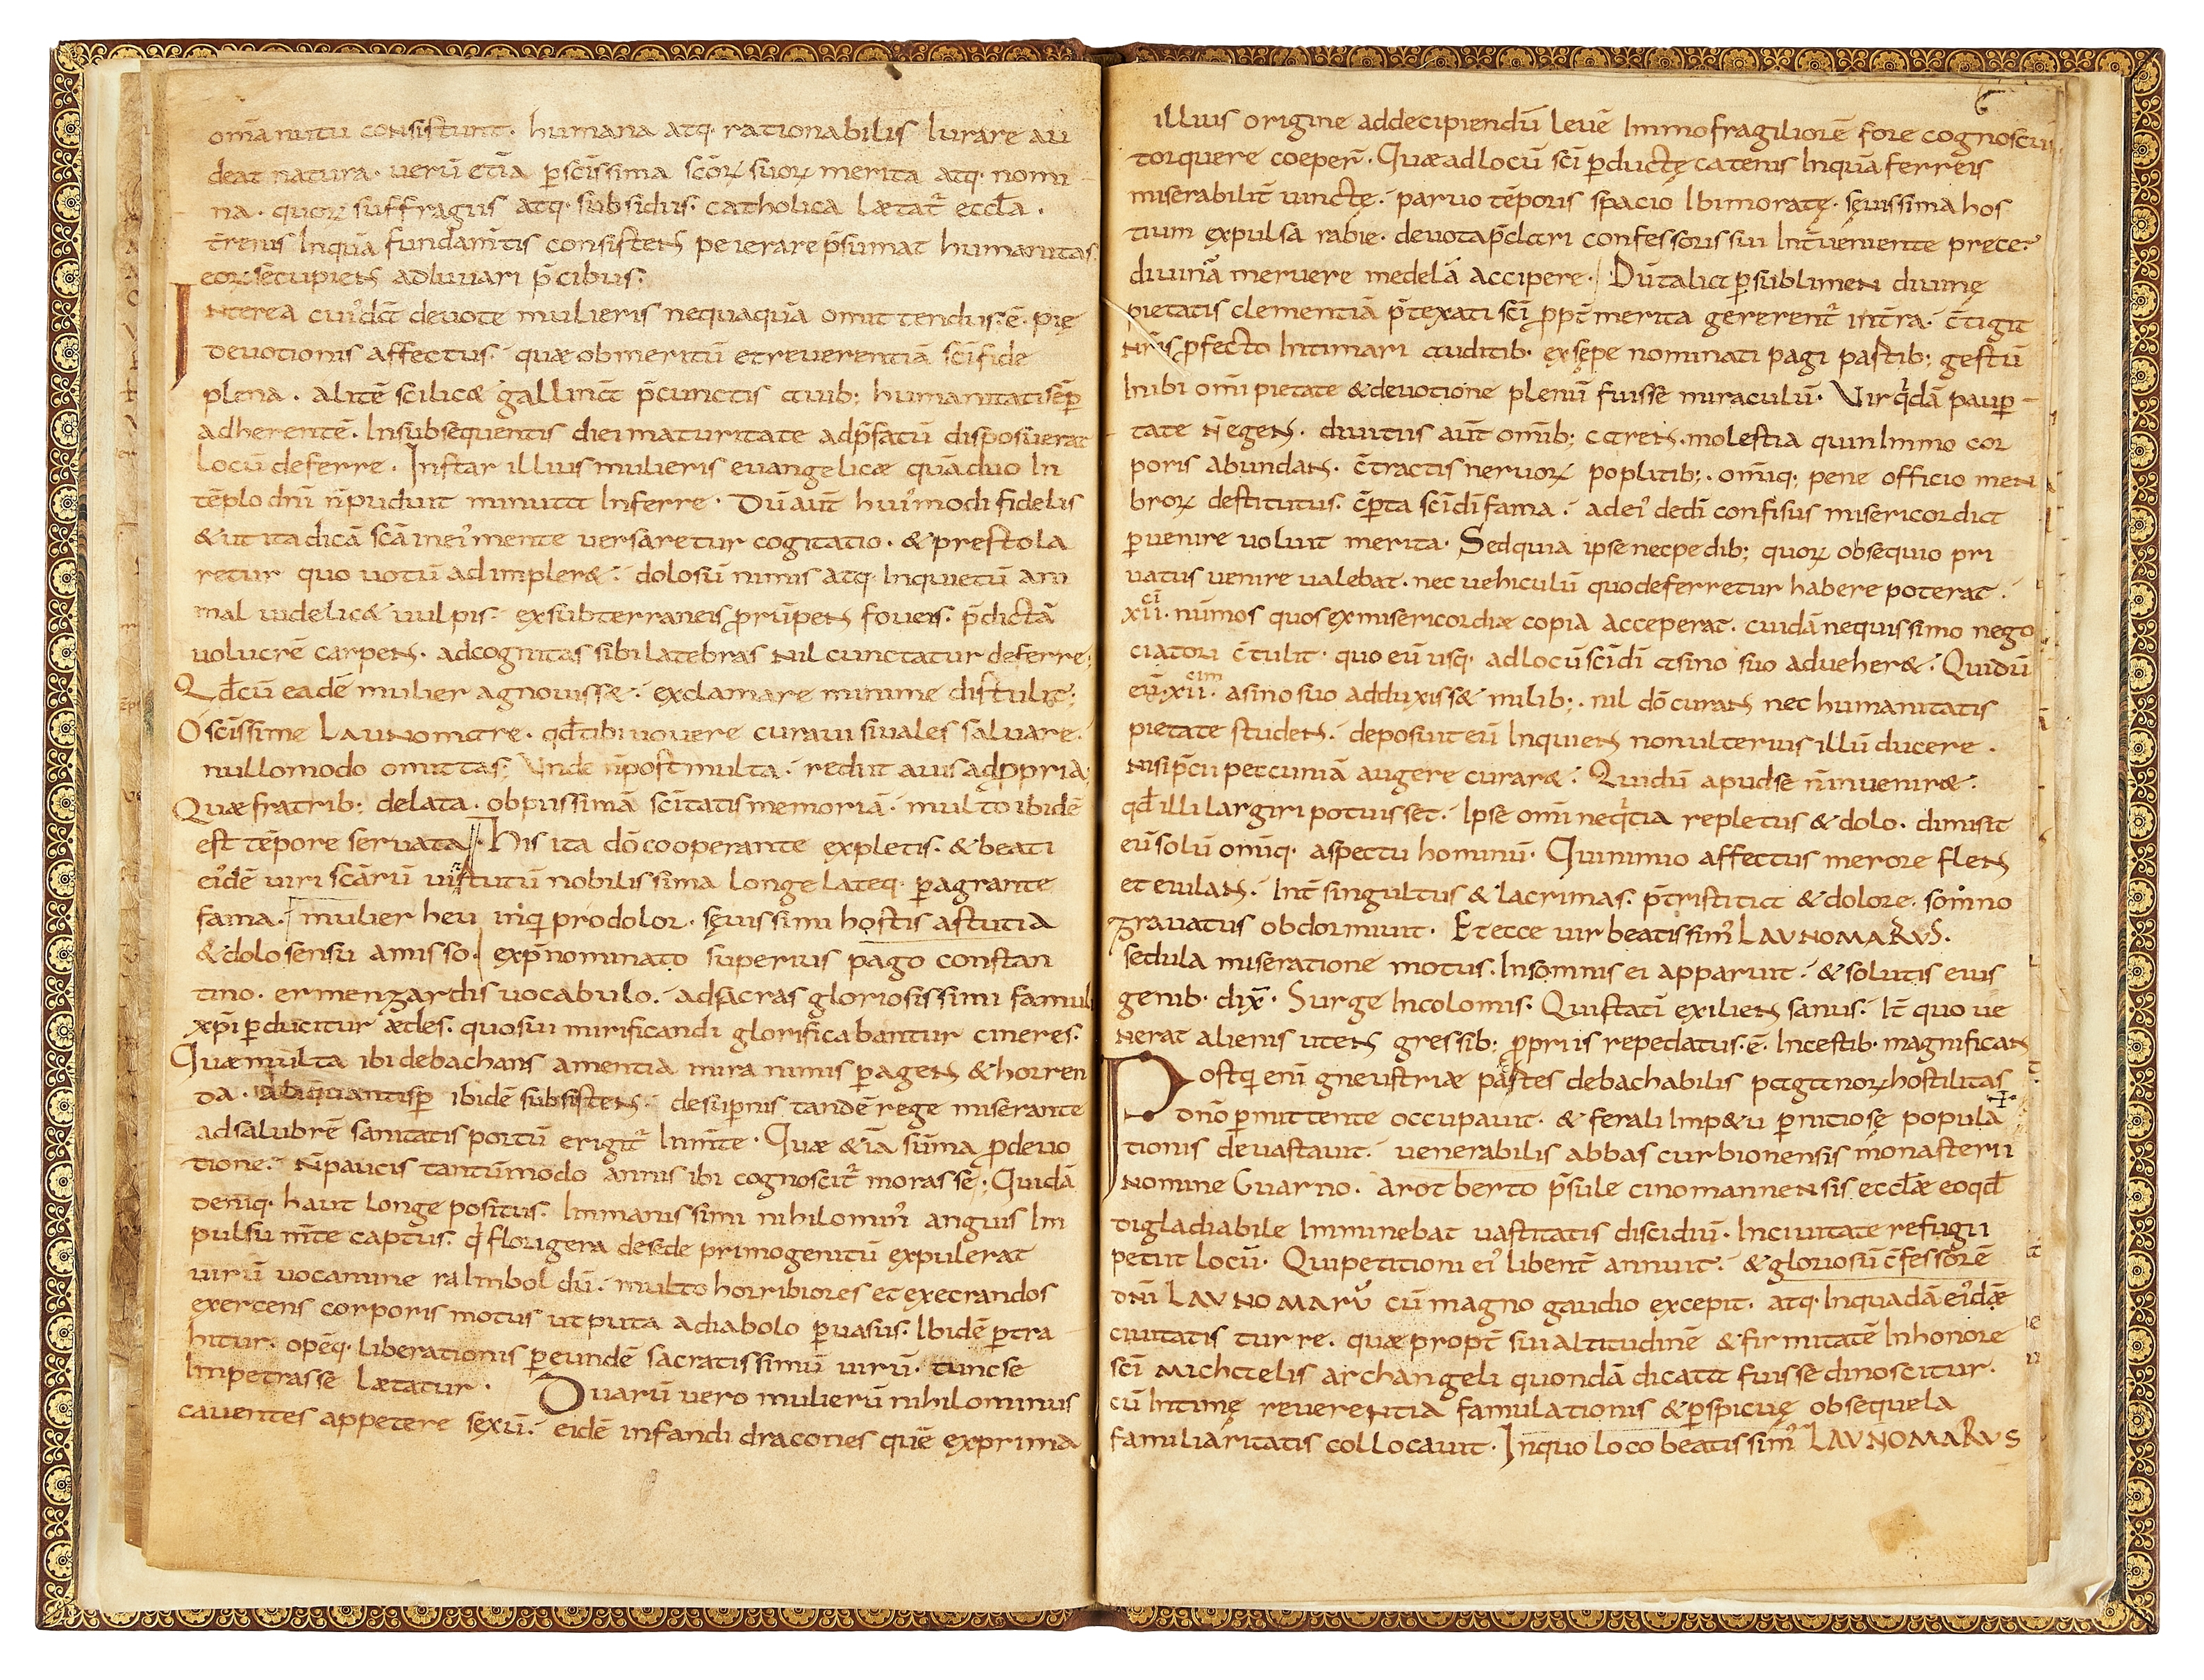 om̄a nutu consistunt· humana atq· rationabilis Iurare au
deat natura· uerū etiā p̄scīssima scōꝝ suoꝝ merita atq· nomi
na· quoꝝ suffragiis atq· subsidiis· catholica Lætat̄ eccl̄a·
t̄renis Inquā fundam̄tis consistens peierare p̄sumat humanitas
eoꝝ sēcupiens adIuuari p̄cibus·
Nterea cui'dā deuote mulieris nequaquā omittendus·ē· pię
deuotionis affectus· quæ ob meritū et reuerentiā sc̄i fide
plena· alitē scilic& gallinā p̄cunctis auib; humanitati sēp
adherentē· In subsequentis diei maturitate adp̄fatū disposuerat
locū deferre· Instar illius mulieris euangelicæ quæ duo In
tēplo dn̄i n̄puduit minuta Inferre· Dū aut̄ hui'modi fidelis
& ut ita dicā scā in ei' mente uersaretur cogitatio· & prestola
retur quo uotū adimpler&· dolosū nimis atq· Inquietū ani
mal uidelic& uulpis· ex subterraneis prūpens foueis· p̄dictā
uolucrē carpens· ad cognitas sibi latebras nil cunctatur deferre;
Qd̄ cū eadē mulier agnouiss&· exclamare minime distulit;
O scīssime Launomare· qd̄ tibi uouere curaui si uales saluare·
nullomodo omittas; Vnde n̄post multa· rediit auis ad ꝓpria;
Quæ fratrib; delata· ob piissimā scītatis memoriā· multo ibidē
est tēpore seruata· His ita dō cooperante expletis· & beati
ei'dē uiri scārū uirtutū nobilissima longe lateq· ꝑagrante
fama· mulier heu inq̄ prodolor· sęuissimi hostis astutia
& dolo sensu amisso· ex p̄nominato superius pago constan
tino· ermengardis uocabulo· ad sacras gloriosissimi famuli
xp̄i ꝑducitur ædes· quo sui mirificandi glorificabantur cineres·
Quæ multa ibi debachans amentia mira nimis ꝑagens & horren
da· aliquantisꝑ ibidē subsistens· desuꝑnis tandē rege miserante
ad salubrē sanitatis portū erigit̄ In m̄te· Quæ & iā sūma ꝓdeuo
tione· n̄paucis tantūmodo annis ibi cognoscit̄ morasse; Quidā
deniq· haut longe positus· Immanissimi nihilomin' anguis Im
pulsu m̄te captus· q̄ florigera de sede primogenitū expulerat
uirū uocamine raImboldū· multo horribiores et execrandos
exercens corporis motus ut puta a diabolo ꝑuasus· Ibidē ꝑtra
hitur· opēq· liberationis ꝑ eundē sacratissimū uirū· tunc se
Impetrasse Lætatur· Duarū uero mulierū nihilominus
cauentes appetere sęxū· eidē infandi dracones quē exprima
illius origine ad decipiendū leuē Immo fragiliorē fore cognoscūt
torquere coeper̄· Quæ ad locū sc̄i ꝑductę catenis Inquā ferreis
miserabilit̄ uinctę· paruo tēporis spacio Ibi moratę· sęuissima hos
tium expulsa rabie· deuota p̄clari confessoris sui Int̄ueniente prece·
diuinā meruere medelā accipere· Dū talia ꝑ sublimen diuinę
pietatis clementiā p̄texati sc̄i ꝓpt̄ merita gererent̄ int̄ra· c̄tigit
nr̄is ꝓfecto Intimari auditib· ex sępe nominati pagi partib; gestū
Inibi om̄i pietate & deuotione plenū fuisse miraculū· Vir q̄dā pauꝑ
tate n̄ egens· diuitiis aut̄ omīb; carens· molestia quin Immo cor
poris abundans· c̄tractis neruoꝝ poplitib;· om̄iq; pene officio men
broꝝ destitutus· c̄ꝑta sc̄i dī fama· ad ei' de dī confisus misericordia
ꝑuenire uoluit merita· Sed quia ipse nec pedib; quoꝝ obsequio pri
uatus uenire ualebat· nec uehiculū quo deferretur habere poterat·
xii· nūmos quos ex misericordiæ copia acceperat· cuidā nequissimo nego
ciatori c̄tulit· quo eū usq· ad locū sc̄i dī asino suo adueher&· Qui dū
eū·xii· asino suo adduxiss& milib;· nil dō curans nec humanitatis
pietate studens· deposuit eū Inquiens non ulterius illū ducere·
nisi p̄cii pecuniā augere curar&· Qui dū apud se n̄ inuenir&·
qd̄ illi largiri potuisset· Ipse om̄i neq̄tia repletus & dolo· dimisit
eū solū om̄iq· aspectu hominū· Qui nimio affectus merore flens
et eiulans· Int̄ singultus & lacrimas· p̄tristitia & dolore· somno
grauatus obdormiuit· Et ecce uir beatissim' LAVNOMARVS·
sedula miseratione motus· In somnis ei apparuit· & solutis eius
genib· dix̄· Surge Incolomis· Qui statī exiliens sanus· It̄ quo ue
nerat alienis utens gressib; ꝓpriis repedatus·ē· In cestib· magnifican
Postq̄ enī gneustriæ partes debachabilis paganoꝝ hostilitas
dn̄o ꝑmittente occupauit· & ferali Imp&u ꝑnitiosę popula
tionis deuastauit· uenerabilis abbas curbionensis monasterii
nomine Guarno· a rotberto p̄sule cinomannensis eccl̄æ eo qd̄
digladiabile Imminebat uastitatis discidiū· In ciuitate refugii
petiit locū· Qui petitioni ei' libent̄ annuit· & gloriosū c̄fessorē
dn̄i LAVNOMARŪ cū magno gaudio excepit· atq· In quadā ei'dæ
ciuitatis turre· quæ propt̄ sui altitudinē & firmitatē In honore
sc̄i michaelis archangeli quondā dicata fuisse dinoscitur·
cū Intimę reuerentia famulationis & ꝑspicuę obsequela
familiaritatis collocauit· In quo loco beatissim' LAVNOMARVS